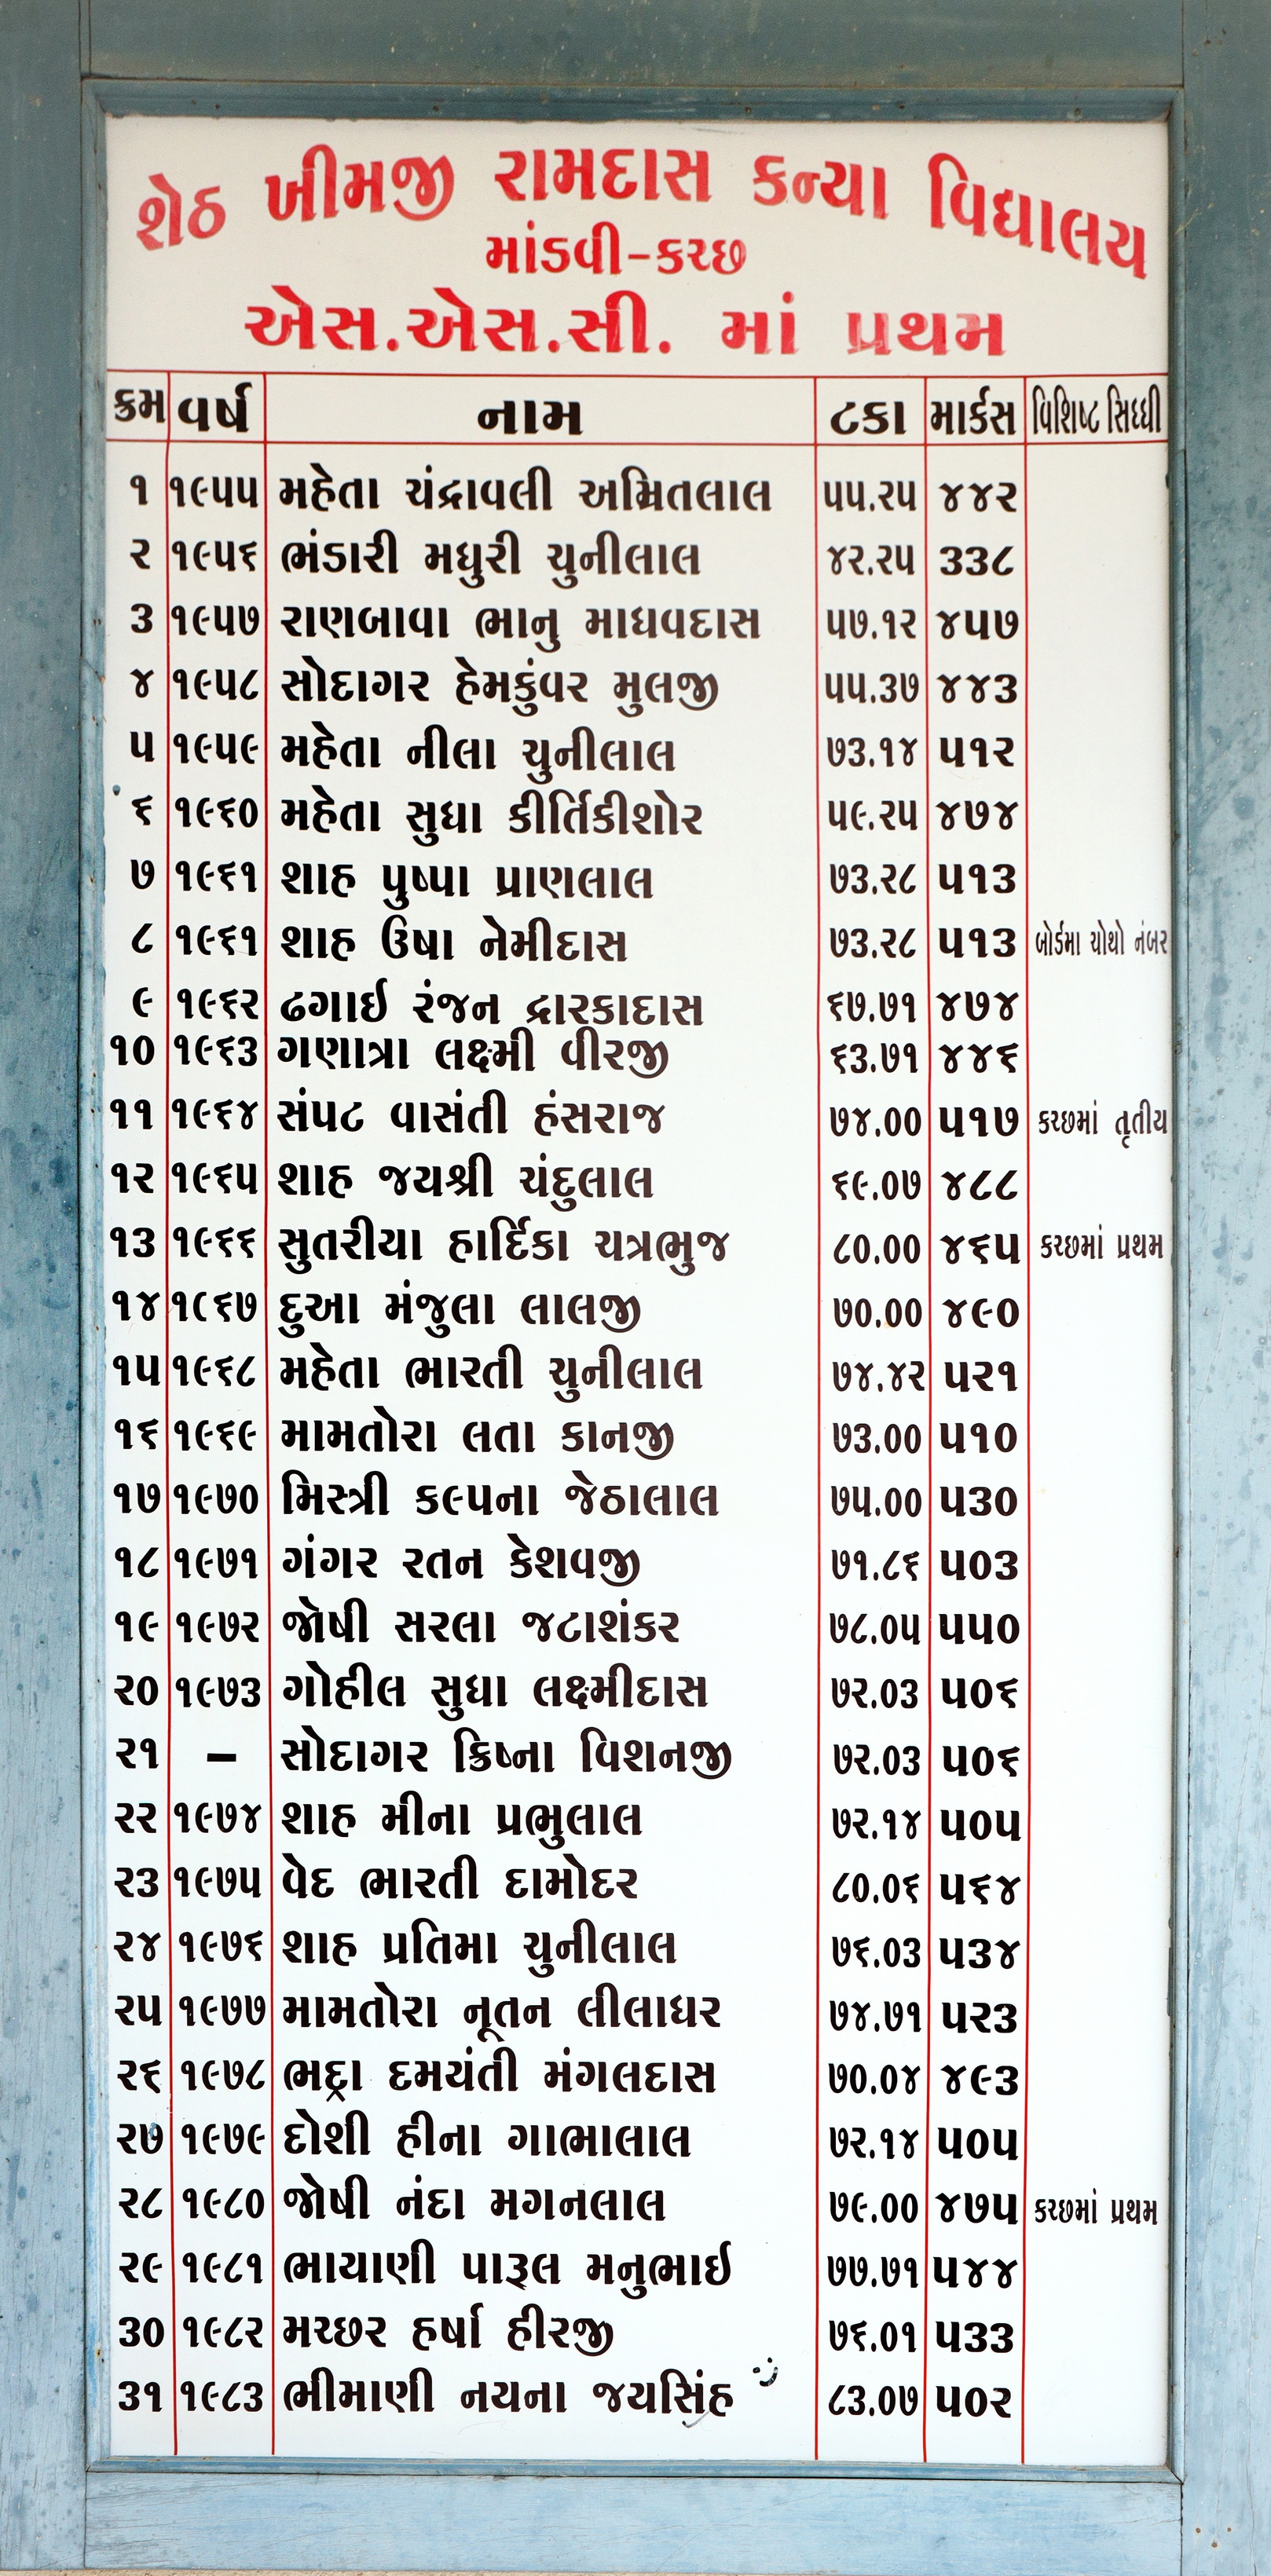 શેઠ ખીમજી રામદાસ કન્યા વિદ્યાલય
માંડવી-કચ્છ
એસ.એસ.સી. માં પ્રથમ
ક્રમ વર્ષ નામ ટકા માર્કસ વિશિષ્ટ સિધ્ધી
૧ ૧૯૫૫ મહેતા ચંદ્રાવલી અમ્રિતલાલ ૫૫.૨૫ ૪૪૨
૨ ૧૯૫૬ ભંડારી મધુરી ચુનીલાલ ૪૨.૨૫ ૩૩૮
૩ ૧૯૫૭ રાણબાવા ભાનુ માધવદાસ ૫૭.૧૨ ૪૫૭
૪ ૧૯૫૮ સોદાગર હેમકુંવર મુલજી ૫૫.૩૭ ૪૪૩
૫ ૧૯૫૯ મહેતા નીલા ચુનીલાલ ૭૩.૧૪ ૫૧૨
૬ ૧૯૬૦ મહેતા સુધા કીર્તિકીશોર ૫૯.૨૫ ૪૭૪
૭ ૧૯૬૧ શાહ પુષ્પા પ્રાણલાલ ૭૩.૨૮ ૫૧૩
૮ ૧૯૬૧ શાહ ઉષા નેમીદાસ ૭૩.૨૮ ૫૧૩ બોર્ડમા ચોથો નંબર
૯ ૧૯૬૨ ઢગાઈ રંજન દ્રારકાદાસ ૬૭.૭૧ ૪૭૪
૧૦ ૧૯૬૩ ગણાત્રા લક્ષ્મી વીરજી ૬૩.૭૧ ૪૪૬
૧૧ ૧૯૬૪ સંપટ વાસંતી હંસરાજ ૭૪.૦૦ ૫૧૭ કચ્છમાં તૃતીય
૧૨ ૧૯૬૫ શાહ જયશ્રી ચંદુલાલ ૬૯.૦૭ ૪૮૮
૧૩ ૧૯૬૬ સુતરીયા હાર્દિકા ચત્રભુજ ૮૦.૦૦ ૪૬૫ કચ્છમાં પ્રથમ
૧૪ ૧૯૬૭ દુઆ મંજુલા લાલજી ૭૦.૦૦ ૪૯૦
૧૫ ૧૯૬૮ મહેતા ભારતી ચુનીલાલ ૭૪.૪૨ ૫૨૧
૧૬ ૧૯૬૯ મામતોરા લતા કાનજી ૭૩.૦૦ ૫૧૦
૧૭ ૧૯૭૦ મિસ્ત્રી કલ્પના જેઠાલાલ ૭૫.૦૦ ૫૩૦
૧૮ ૧૯૭૧ ગંગર રતન કેશવજી ૭૧.૮૬ ૫૦૩
૧૯ ૧૯૭૨ જોષી સરલા જટાશંકર ૭૮.૦૫ ૫૫૦
૨૦ ૧૯૭૩ ગોહીલ સુધા લક્ષ્મીદાસ ૭૨.૦૩ ૫૦૬
૨૧ – સોદાગર ક્રિષ્ના વિશનજી ૭૨.૦૩ ૫૦૬
૨૨ ૧૯૭૪ શાહ મીના પ્રભુલાલ ૭૨.૧૪ ૫૦૫
૨૩ ૧૯૭૫ વેદ ભારતી દામોદર ૮૦.૦૬ ૫૬૪
૨૪ ૧૯૭૬ શાહ પ્રતિમા ચુનીલાલ ૭૬.૦૩ ૫૩૪
૨૫ ૧૯૭૭ મામતોરા નૂતન લીલાધર ૭૪.૭૧ ૫૨૩
૨૬ ૧૯૭૮ ભદ્રા દમયંતી મંગલદાસ ૭૦.૦૪ ૪૯૩
૨૭ ૧૯૭૯ દોશી હીના ગાભાલાલ ૭૨.૧૪ ૫૦૫
૨૮ ૧૯૮૦ જોષી નંદા મગનલાલ ૭૯.૦૦ ૪૭૫ કચ્છમાં પ્રથમ
૨૯ ૧૯૮૧ ભાયાણી પારૂલ મનુભાઈ ૭૭.૭૧ ૫૪૪
૩૦ ૧૯૮૨ મચ્છર હર્ષા હીરજી ૭૬.૦૧ ૫૩૩
૩૧ ૧૯૮૩ ભીમાણી નયના જયસિંહ ૮૩.૦૭ ૫૦૨